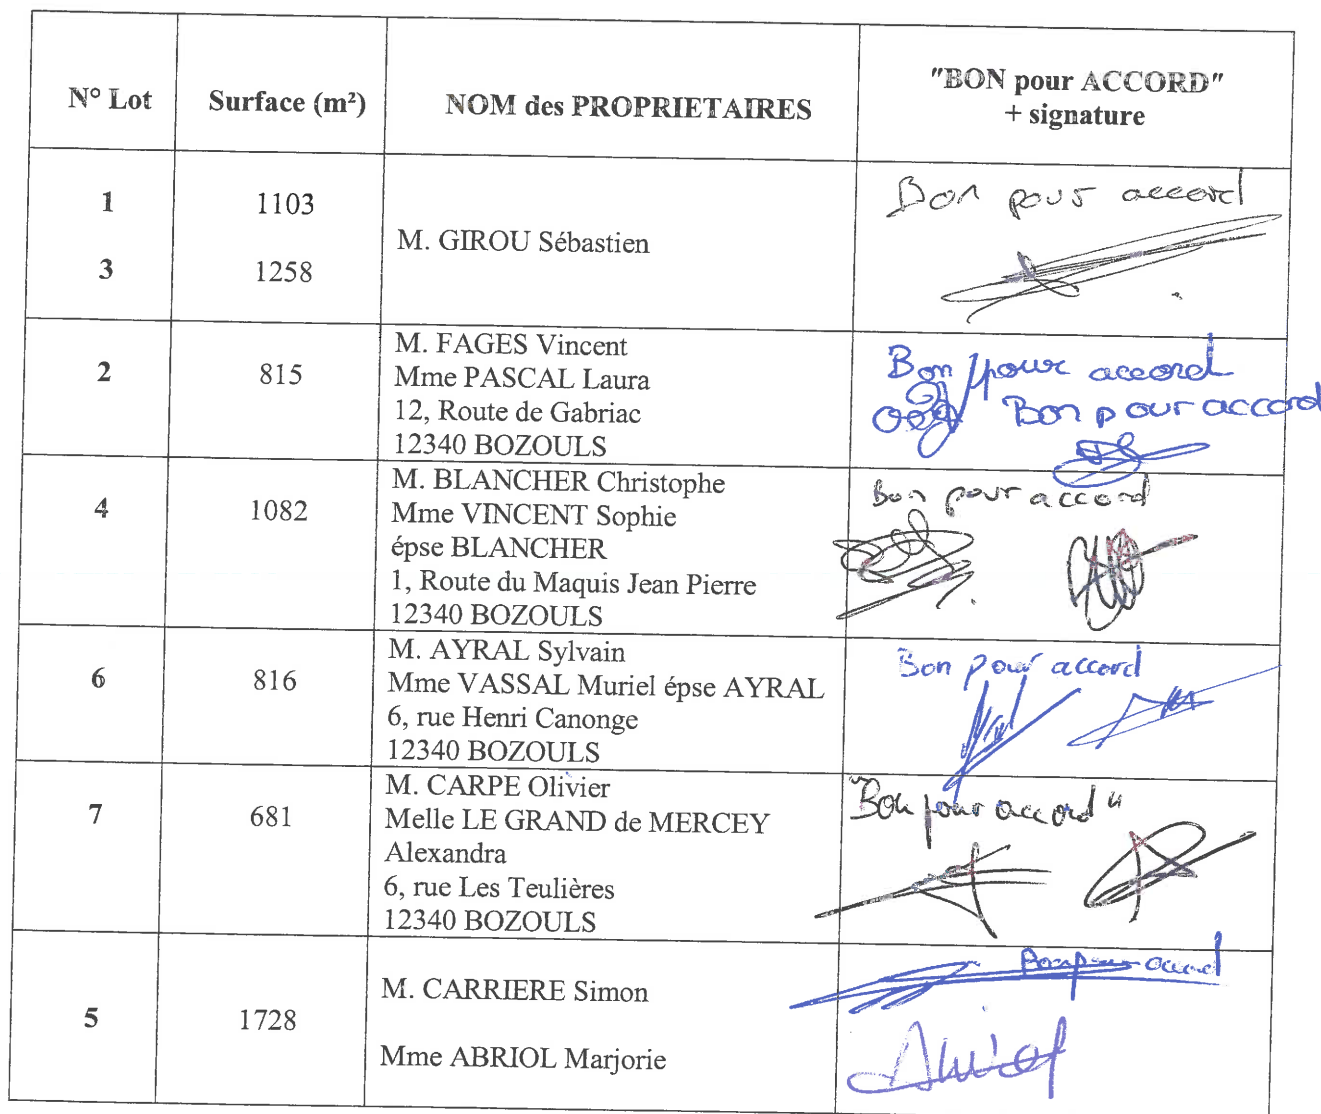 N° Lot
Surface (m²)
NOM des PROPRIETAIRES
"BON pour ACCORD"
+ signature
1
1103
3
1258
M. GIROU Sébastien
Bon pour accord
2
815
M. FAGES Vincent
Mme PASCAL Laura
12, Route de Gabriac
12340 BOZOULS
Bon pour accord
Bon pour accord
4
1082
M. BLANCHER Christophe
Mme VINCENT Sophie
épse BLANCHER
1, Route du Maquis Jean Pierre
12340 BOZOULS
Bon pour accord
6
816
M. AYRAL Sylvain
Mme VASSAL Muriel épse AYRAL
6, rue Henri Canonge
12340 BOZOULS
Bon pour accord
7
681
M. CARPE Olivier
Melle LE GRAND de MERCEY
Alexandra
6, rue Les Teulières
12340 BOZOULS
"Bon pour accord"
5
1728
M. CARRIERE Simon
Mme ABRIOL Marjorie
Bon pour accord